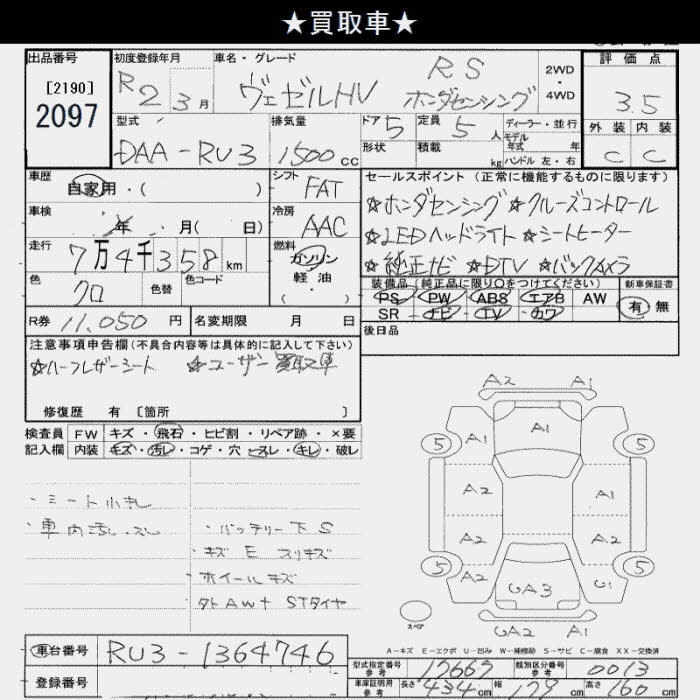 ★買取車★
出品番号
[2190]
2097
初度登録年月
R2 3月
車名・グレード
ヴェゼルHV RS ホンダセンシング
2WD・4WD
評価点
3.5
型式
DAA-RU3
排気量
1500cc
ドア 5
定員 5人
ディーラー・並行
モデル年式 年
形状
積載 kg
ハンドル 左・右
外装 内装
C C
車歴
自家用・( )
シフト
FAT
セールスポイント (正常に機能するものに限ります)
☆ホンダセンシング ☆クルーズコントロール
☆LEDヘッドライト ☆シートヒーター
☆純正ナビ ☆DTV ☆バックカメラ
車検
年 月( 日)
冷房
AAC
走行
7万4千358km
燃料
ガソリン・軽油
色
クロ
色替
色コード
装備品 (純正品に限り○をつけてください)
PS PW ABS エアB AW
SR ナビ TV カワ
新車保証書
有 無
R券 11,050円
名変期限 月 日
後日品
注意事項申告欄 (不具合内容等は具体的に記入して下さい)
☆ハーフレザーシート ☆ユーザー買取車
修復歴 有 [箇所 ]
検査員記入欄
FW キズ・飛石・ヒビ割・リペア跡・×要
内装 キズ・汚レ・コゲ・穴・スレ・キレ・破レ
・シート小キレ
・車内汚レ・スレ
・バッテリー下S
・キズ E スリキズ
・ホイールキズ
・タト AW+STタイヤ
A2 A1
5 A1 A1 5
A2 A1
A2 A2
5 UA3 U1 5
スペア
UA2 A1
A-キズ E-エクボ U-凹み W-補修跡 S-サビ C-腐食 XX-交換済
車台番号 RU3-1364746
登録番号
型式指定番号 参考 17667
類別区分番号 参考 0013
車庫証明用 参考 長さ 434cm 幅 179cm 高さ 160cm